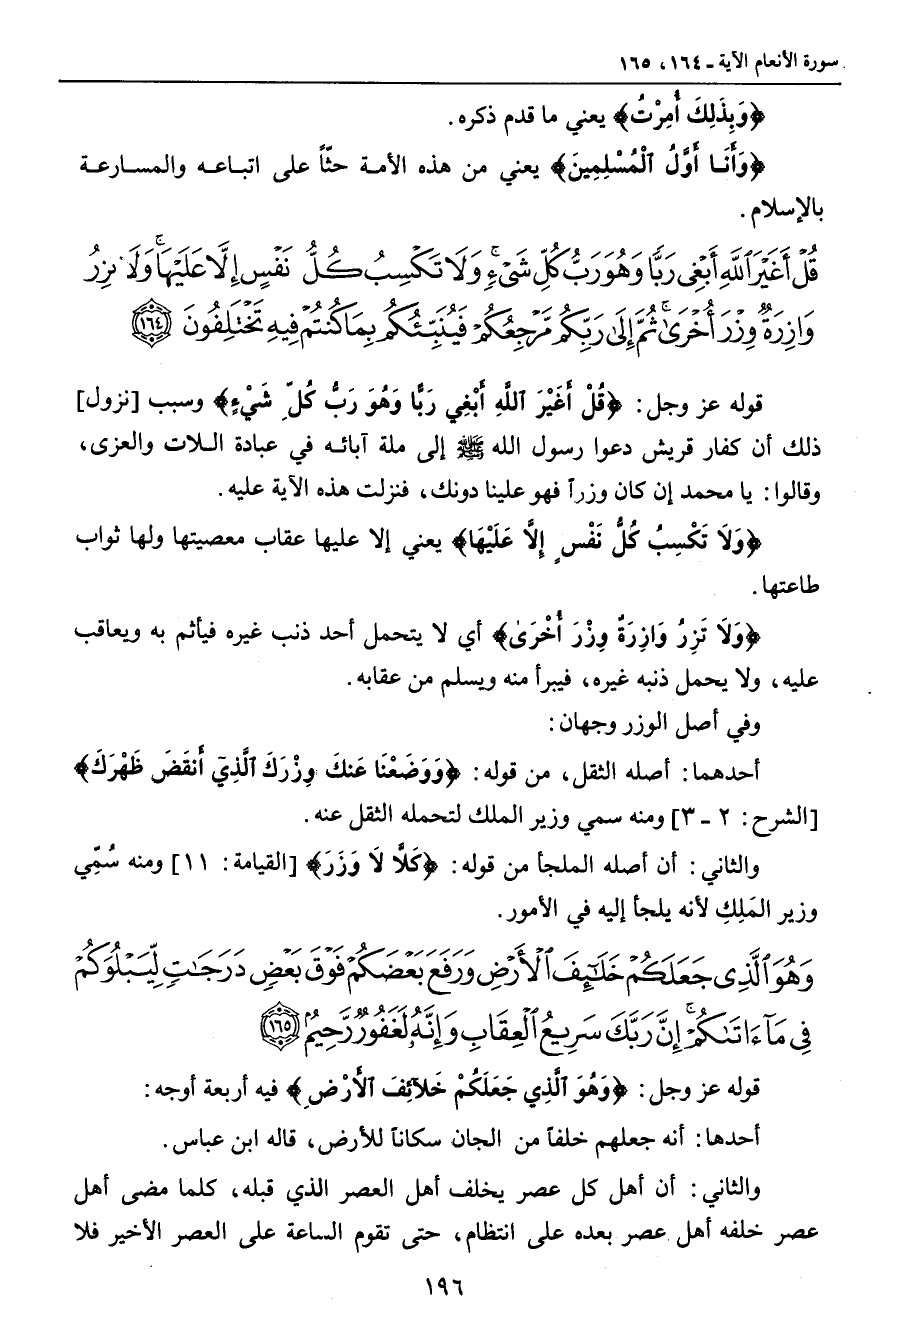 سورة الأنعام الآية ـ ١٦٤، ١٦٥
﴿وَبِذَلِكَ أُمِرْتُ﴾ يعني ما قدم ذكره.
﴿وَأَنَا أَوَّلُ ٱلْمُسْلِمِينَ﴾ يعني من هذه الأمة حثّاً على اتباعه والمسارعة
بالإسلام.
قُلْ أَغَيْرَ ٱللَّهِ أَبْغِى رَبًّا وَهُوَ رَبُّ كُلِّ شَىْءٍ ۚ وَلَا تَكْسِبُ كُلُّ نَفْسٍ إِلَّا عَلَيْهَا ۚ وَلَا تَزِرُ
وَازِرَةٌ وِزْرَ أُخْرَىٰ ۚ ثُمَّ إِلَىٰ رَبِّكُم مَّرْجِعُكُمْ فَيُنَبِّئُكُم بِمَا كُنتُمْ فِيهِ تَخْتَلِفُونَ ١٦٤
قوله عز وجل: ﴿قُلْ أَغَيْرَ ٱللَّهِ أَبْغِي رَبًّا وَهُوَ رَبُّ كُلِّ شَيْءٍ﴾ وسبب [نزول]
ذلك أن كفار قريش دعوا رسول الله ﷺ إلى ملة آبائه في عبادة اللات والعزى،
وقالوا: يا محمد إن كان وزراً فهو علينا دونك، فنزلت هذه الآية عليه.
﴿وَلَا تَكْسِبُ كُلُّ نَفْسٍ إِلَّا عَلَيْهَا﴾ يعني إلا عليها عقاب معصيتها ولها ثواب
طاعتها.
﴿وَلَا تَزِرُ وَازِرَةٌ وِزْرَ أُخْرَىٰ﴾ أي لا يتحمل أحد ذنب غيره فيأثم به ويعاقب
عليه، ولا يحمل ذنبه غيره، فيبرأ منه ويسلم من عقابه.
وفي أصل الوزر وجهان:
أحدهما: أصله الثقل، من قوله: ﴿وَوَضَعْنَا عَنكَ وِزْرَكَ ٱلَّذِيٓ أَنقَضَ ظَهْرَكَ﴾
[الشرح: ٢ ـ ٣] ومنه سمي وزير الملك لتحمله الثقل عنه.
والثاني: أن أصله الملجأ من قوله: ﴿كَلَّا لَا وَزَرَ﴾ [القيامة: ١١] ومنه سُمِّي
وزير المَلِكِ لأنه يلجأ إليه في الأمور.
وَهُوَ ٱلَّذِى جَعَلَكُمْ خَلَٰٓئِفَ ٱلْأَرْضِ وَرَفَعَ بَعْضَكُمْ فَوْقَ بَعْضٍ دَرَجَٰتٍ لِّيَبْلُوَكُمْ
فِى مَآ ءَاتَىٰكُمْ ۗ إِنَّ رَبَّكَ سَرِيعُ ٱلْعِقَابِ وَإِنَّهُۥ لَغَفُورٌ رَّحِيمٌ ١٦٥
قوله عز وجل: ﴿وَهُوَ ٱلَّذِي جَعَلَكُمْ خَلَائِفَ ٱلْأَرْضِ﴾ فيه أربعة أوجه:
أحدها: أنه جعلهم خلفاً من الجان سكاناً للأرض، قاله ابن عباس.
والثاني: أن أهل كل عصر يخلف أهل العصر الذي قبله، كلما مضى أهل
عصر خلفه أهل عصر بعده على انتظام، حتى تقوم الساعة على العصر الأخير فلا
١٩٦